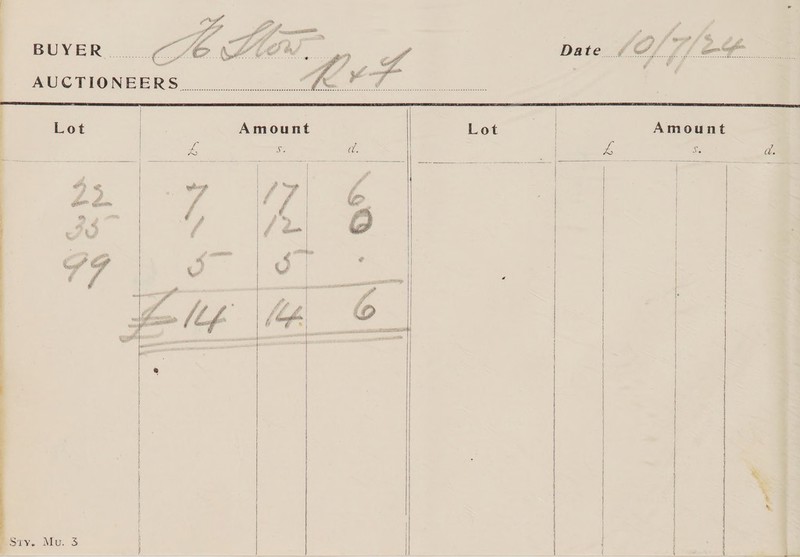 BUYER H Stow. Date 10/7/24
AUCTIONEERS R & F
Lot Amount Lot Amount
£ s. d. £ s. d.
22 7 17 6
35 1 12 0
99 5 5 .
£14 14 6
Sty. Mu. 3